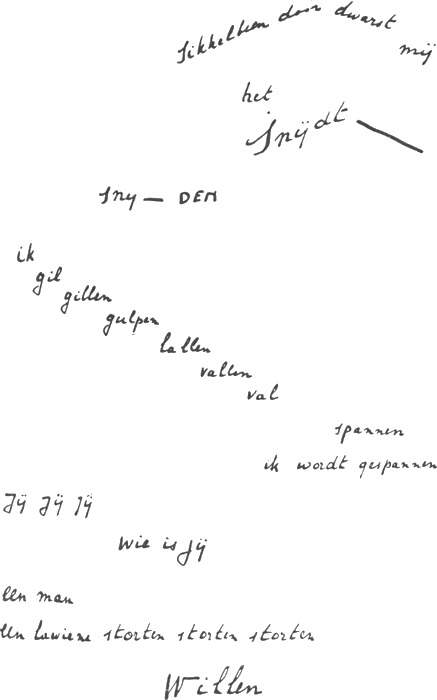 Sikkelbeen door dwarst
mij
het
Snijdt —
Sny — DEN
ik
gil
gillen
gulpen
lallen
vallen
val
spannen
ik wordt gespannen
Jij Jij Jij
Wie is Jij
een man
een lawiene storten storten storten
Willen